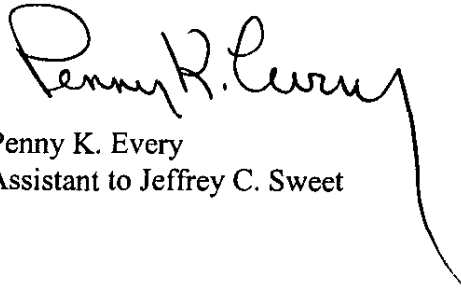 Penny K. Every
Penny K. Every
Assistant to Jeffrey C. Sweet